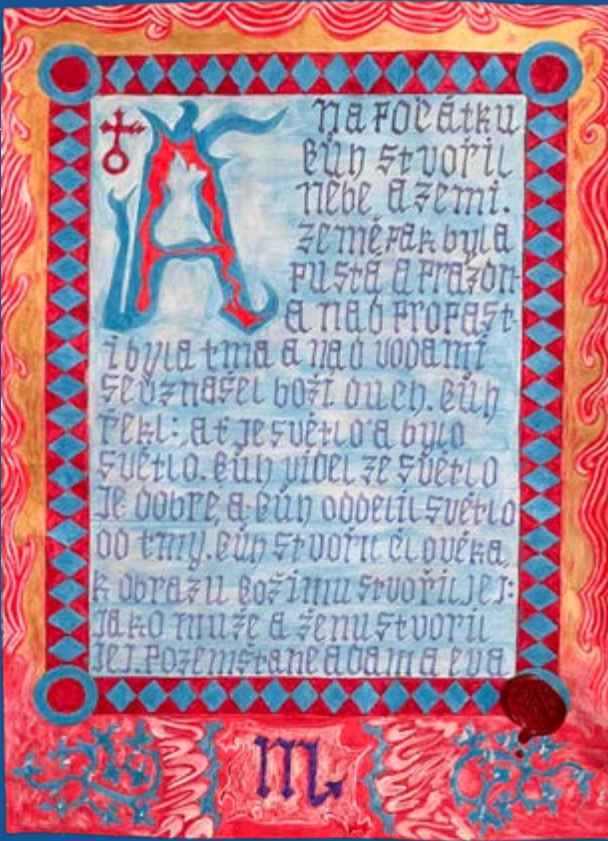 A
Na počátku
Bůh stvořil
nebe a zemi.
země pak byla
pustá a prázdn-
a nad propast-
i byla tma a nad vodami
se vznášel boží duch. Bůh
řekl: ať je světlo a bylo
světlo. Bůh viděl ze světlo
je dobré, a Bůh oddělil světlo
od tmy. Bůh stvořil člověka,
k obrazu Božímu stvořil jej:
jako muže a ženu stvořil
jej. Pozemšťané adam a eva